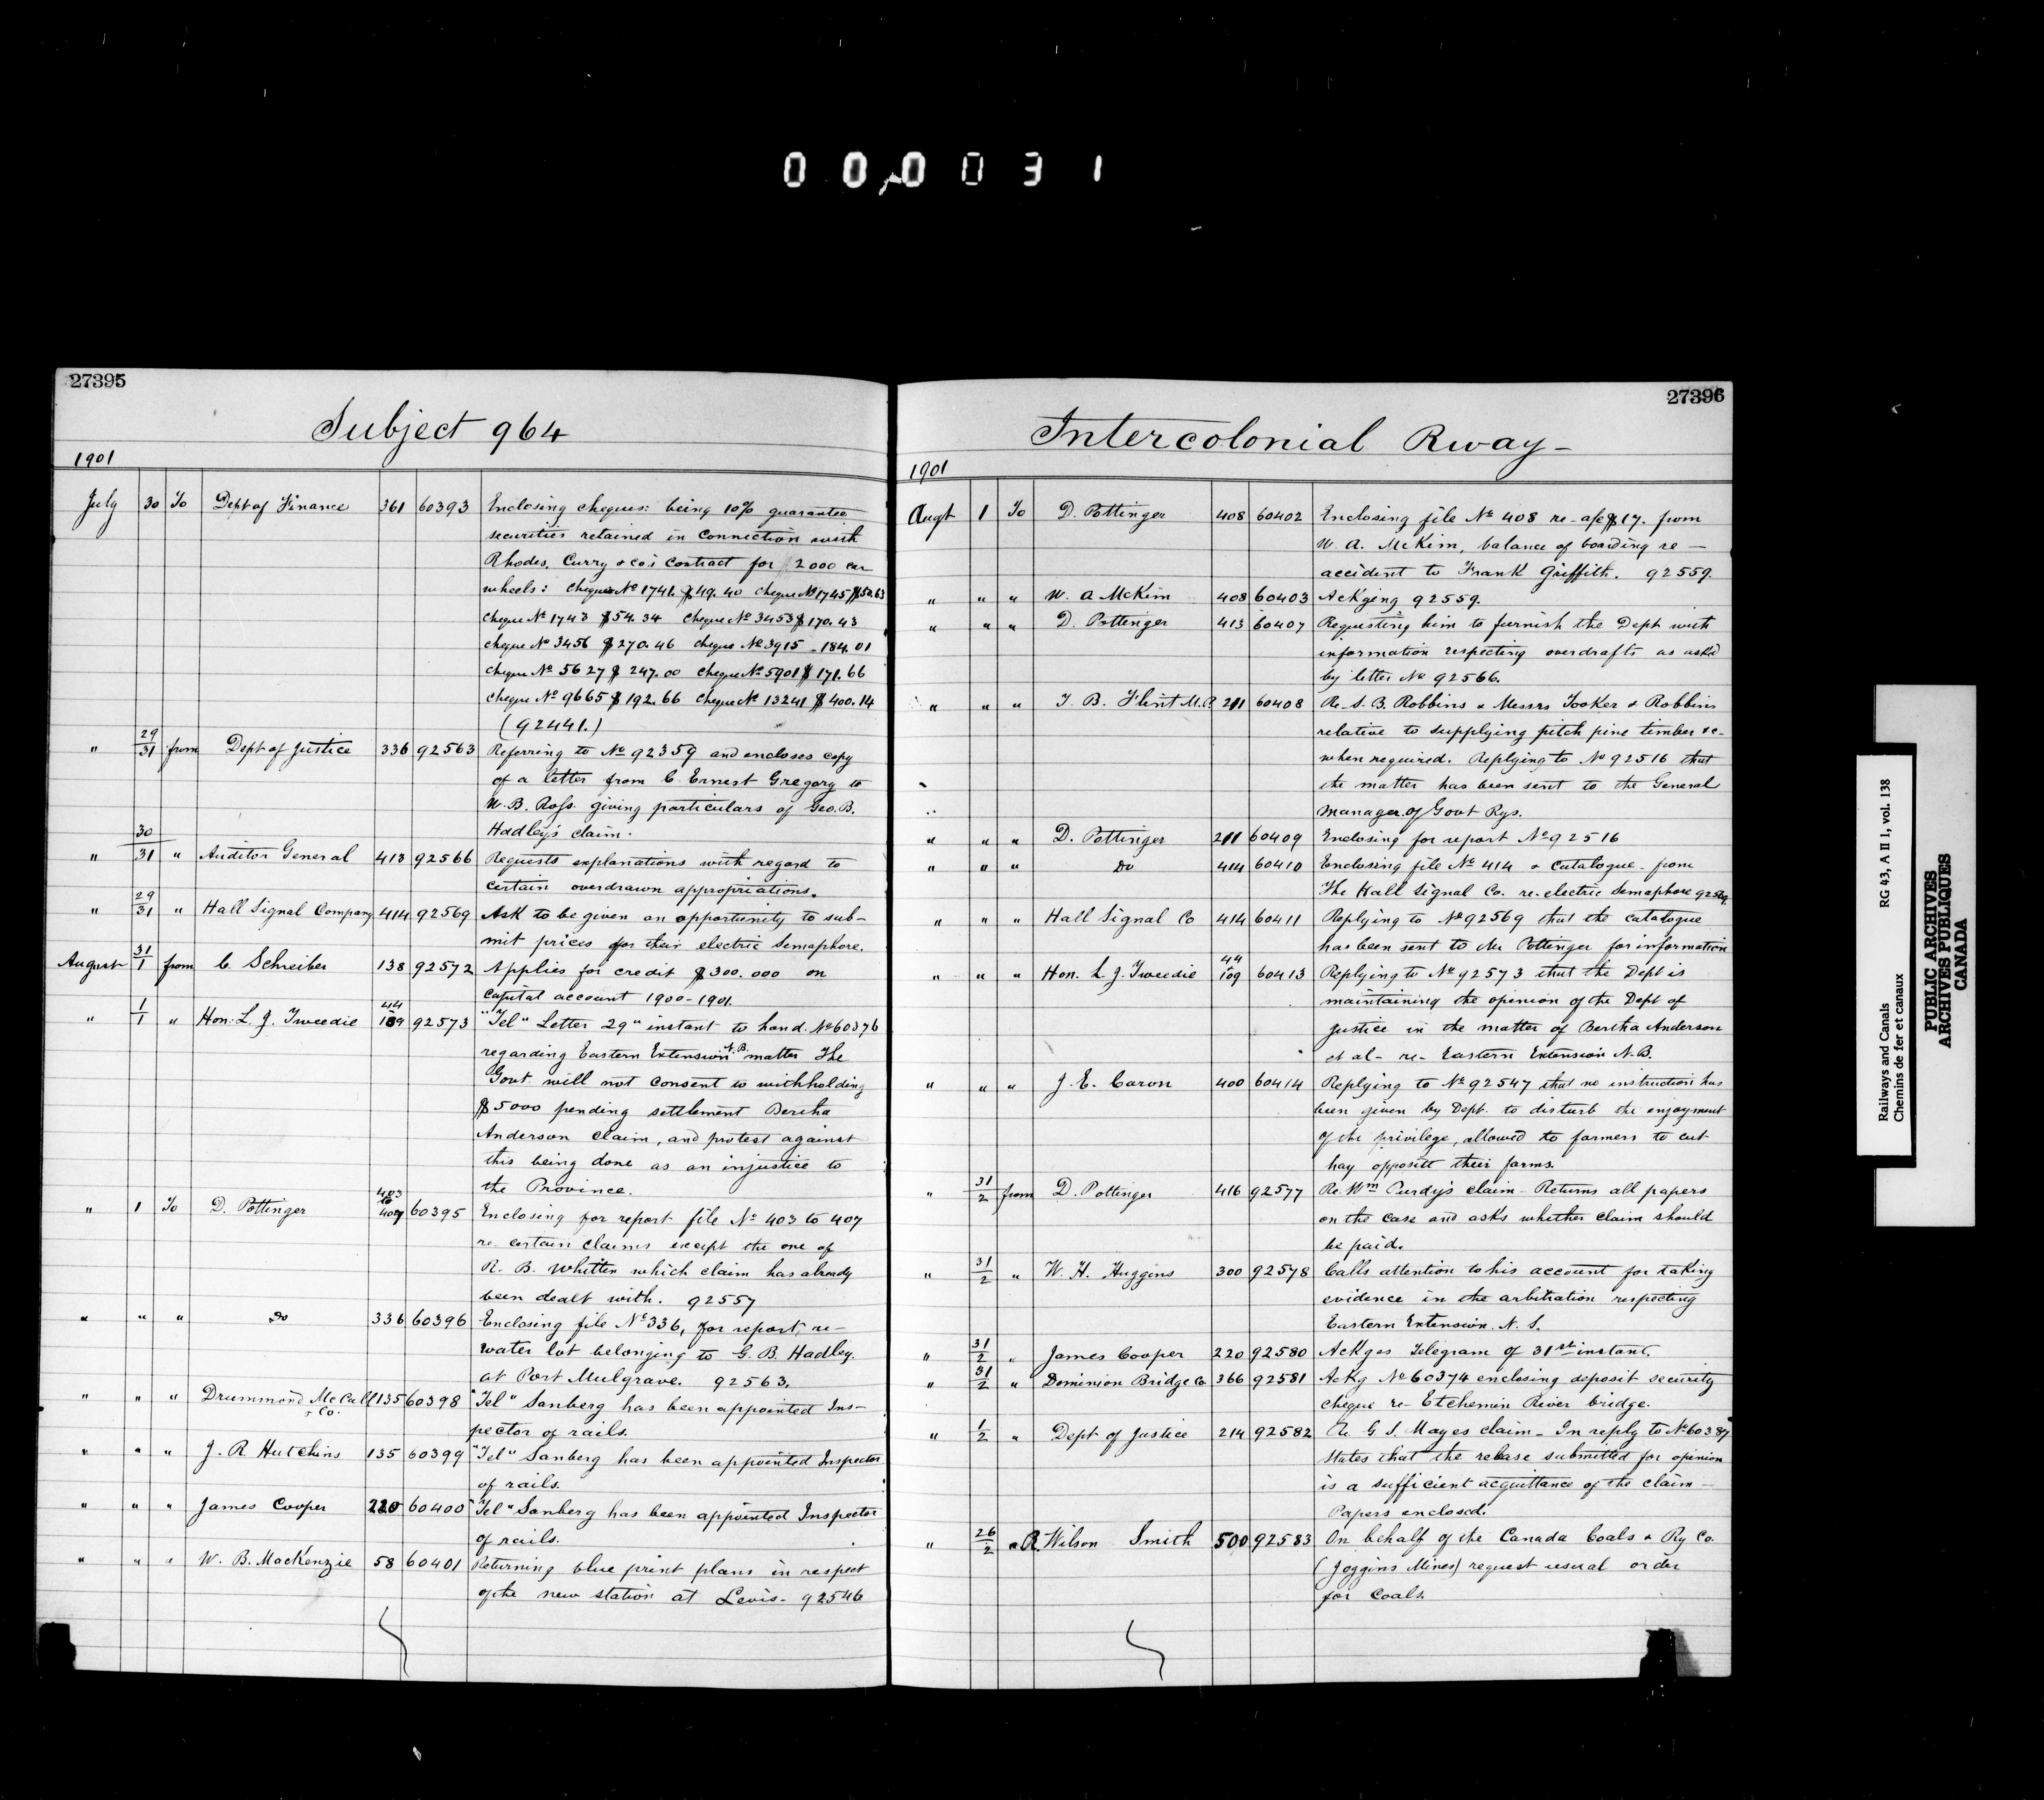 00,0031
27395
Subject 964
1901
July 30 To Dept of Finance 361 60393 Enclosing cheques: being 10% guarantee
securities retained in connection with
Rhodes, Curry & co's contract for 2000 car
wheels: cheque No 1741. $49.40 cheque No 1745 $50.63
cheque No 1743 $54.34 cheque No 3453 $170.43
cheque No 3456 $270.46 cheque No 3915 - 184.01
cheque No 5627 $247.00 cheque No 5901 $171.66
cheque No 9665 $192.66 cheque No 13241 $400.14
(92441.)
" 29/31 from Dept of Justice 336 92563 Referring to No 92359 and encloses copy
of a letter from C. Ernest Gregory to
W. B. Ross. giving particulars of Geo. B.
Hadley's claim.
" 30/31 " Auditor General 413 92566 Requests explanations with regard to
certain overdrawn appropriations.
" 29/31 " Hall Signal Company 414 92569 Ask to be given an opportunity to sub-
mit prices for their electric Semaphore.
August 31/1 from C. Schreiber 138 92572 Applies for credit $300.000 on
capital account 1900-1901.
" 1/1 " Hon. L. J. Tweedie 44/109 92573 "Tel" Letter 29" instant to hand. No 60376
regarding Eastern Extension N.B. matter The
Govt will not consent to withholding
$5000 pending settlement Bertha
Anderson claim, and protest against
this being done as an injustice to
the Province.
" 1 To D. Pottinger 403 to 407 60395 Enclosing for report file No 403 to 407
re certain claims except the one of
R. B. Whitten which claim has already
been dealt with. 92557
" " " Do 336 60396 Enclosing file No 336, for report, re-
water lot belonging to G. B. Hadley.
at Port Mulgrave. 92563.
" " " Drummond McCall & Co. 135 60398 "Tel" Sanberg has been appointed Ins-
pector of rails.
" " " J. R. Hutchins 135 60399 "Tel" Sanberg has been appointed Inspector
of rails.
" " " James Cooper 220 60400 "Tel" Sanberg has been appointed Inspector
of rails.
" " " W. B. MacKenzie 58 60401 Returning blue print plans in respect
of the new station at Levis- 92546
27396
Intercolonial Rway-
1901
Augt 1 To D. Pottinger 408 60402 Enclosing file No 408 re- a/c $17. from
W. A. McKim, balance of boarding re-
accident to Frank Griffith. 92559.
" " " W. A McKim 408 60403 Ackging 92559.
" " " D. Pottinger 413 60407 Requesting him to furnish the Dept with
information respecting overdrafts as ask'd
by letter No 92566.
" " " T. B. Flint M.P. 211 60408 Re- S. B. Robbins & Messrs Tooker & Robbins
relative to supplying pitch pine timber &c-
when required. Replying to No 92516 that
the matter has been sent to the General
Manager of Govt Rys.
" " " D. Pottinger 211 60409 Enclosing for report No 92516
" " " Do 414 60410 Enclosing file No 414 & Catalogue from
The Hall Signal Co. re- electric Semaphore 92569.
" " " Hall Signal Co 414 60411 Replying to No 92569 that the catalogue
has been sent to Mr Pottinger for information
" " " Hon. L. J. Tweedie 44/109 60413 Replying to No 92573 that the Dept is
maintaining the opinion of the Dept of
Justice in the matter of Bertha Anderson
et al- re- Eastern Extension N.B.
" " " J. E. Caron 400 60414 Replying to No 92547 that no instruction has
been given by Dept. to disturb the enjoyment
of the privilege, allowed to farmers to cut
hay opposite their farms.
" 31/2 from D. Pottinger 416 92577 Re. Wm Purdy's claim - Returns all papers
on the case and asks whether claim should
be paid.
" 31/2 " W. H. Huggins 300 92578 Calls attention to his account for taking
evidence in the arbitration respecting
Eastern Extension. N. S.
" 31/2 " James Cooper 220 92580 Ackges Telegram of 31st instant.
" 31/2 " Dominion Bridge Co 366 92581 Ackg No 60374 enclosing deposit security
cheque re- Etchemin River bridge.
" 1/2 " Dept of Justice 214 92582 Re G. S. Mayes claim - In reply to No 60387
States that the release submitted for opinion
is a sufficient acquittance of the claim -
Papers enclosed.
" 26/2 " R. Wilson Smith 500 92583 On behalf of the Canada Coals & Ry Co.
(Joggins Mines) request usual order
for coals.
Railways and Canals RG 43, A II 1, vol. 138
Chemins de fer et canaux
PUBLIC ARCHIVES
ARCHIVES PUBLIQUES
CANADA